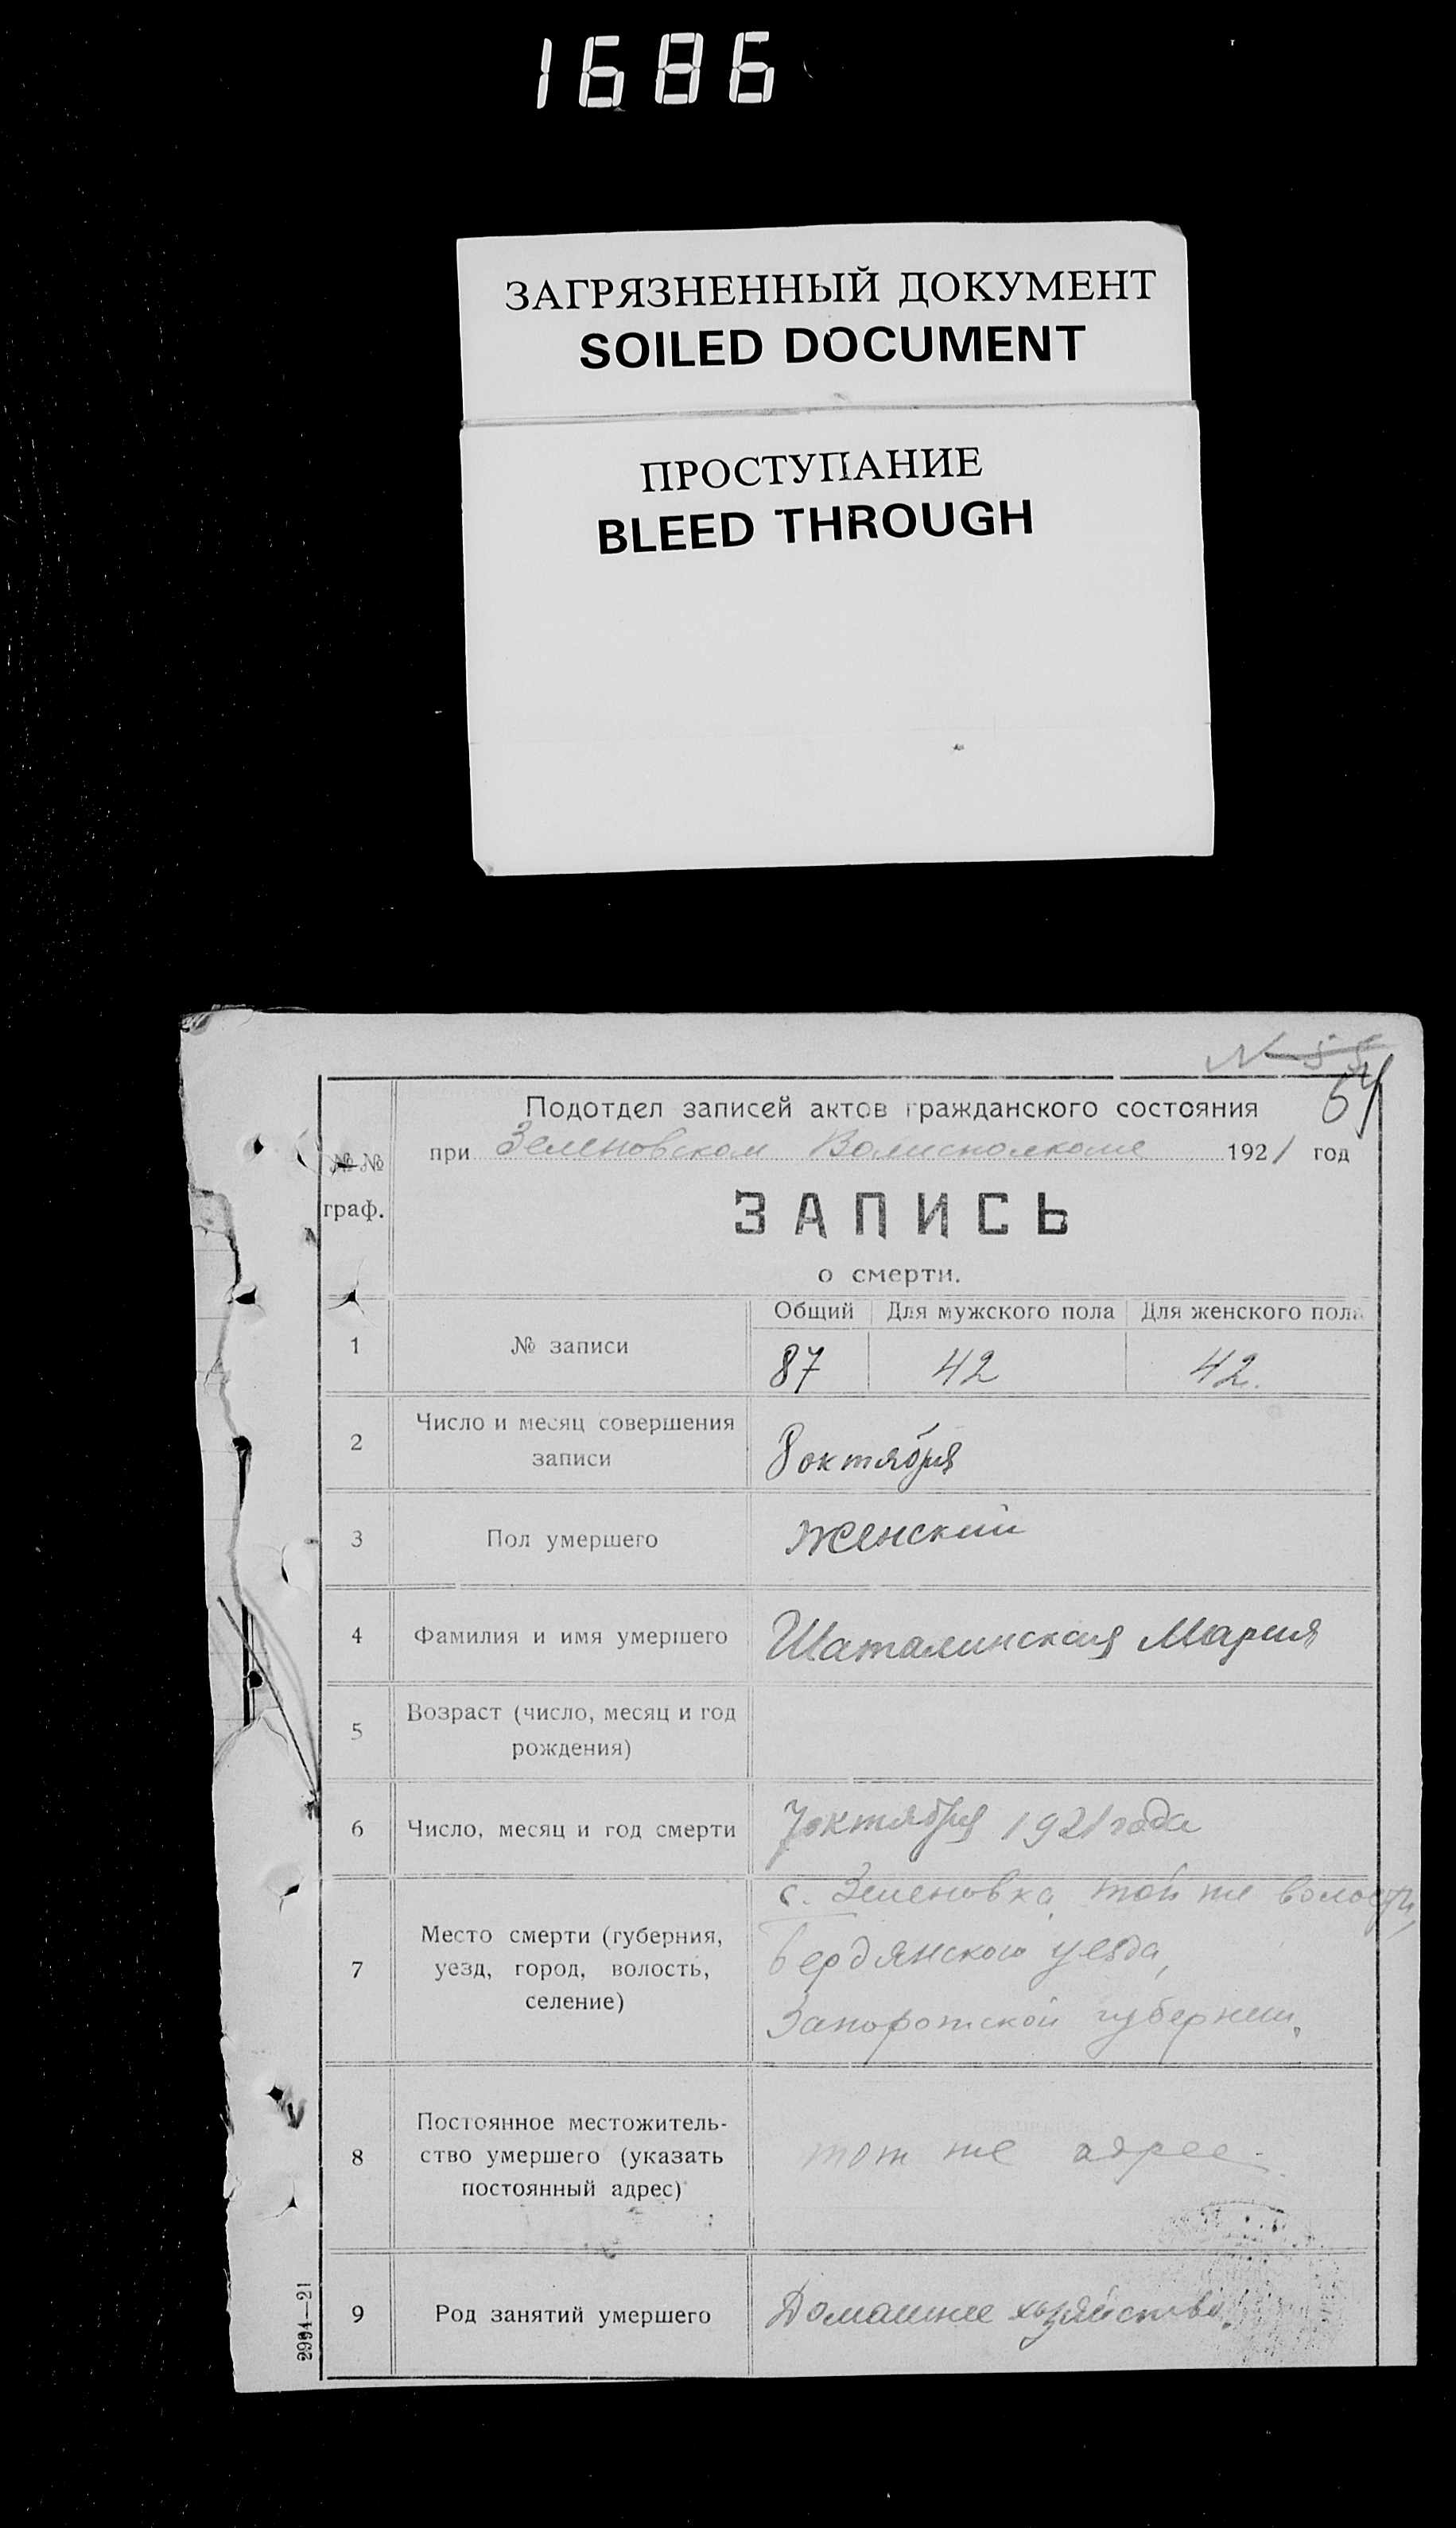 1686
ЗАГРЯЗНЕННЫЙ ДОКУМЕНТ
SOILED DOCUMENT
ПРОСТУПАНИЕ
BLEED THROUGH
N 55
64
Подотдел записей актов гражданского состояния
при Зеленовском Волисполкоме 1921 год
№№
граф.
ЗАПИСЬ
о смерти.
Общий Для мужского пола Для женского пола
1 № записи 87 42 42.
2 Число и месяц совершения
записи 8 октября
3 Пол умершего женский
4 Фамилия и имя умершего Шаталинская Мария
5 Возраст (число, месяц и год
рождения)
6 Число, месяц и год смерти 7 октября 1921 года
7 Место смерти (губерния,
уезд, город, волость,
селение)
с. Зеленовка, той же волости,
Бердянского уезда,
Запорожской губернии.
8 Постоянное местожитель-
ство умершего (указать
постоянный адрес)
тот же адрес.
9 Род занятий умершего Домашнее хозяйство.
2994—21